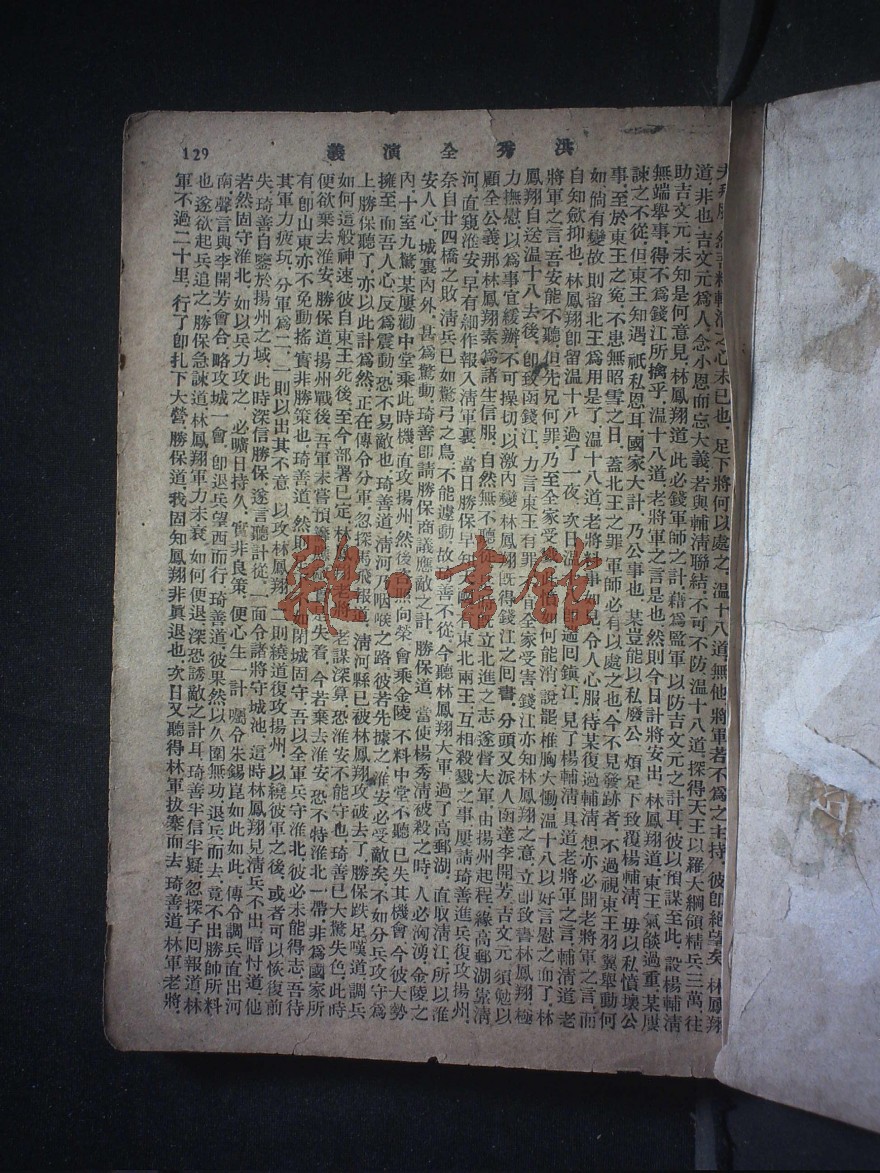 洪秀全演義
129
輔淸之心未已也．足下將何以處之．溫十八道．無他．將軍若不爲之主持．彼卽絕望矣．林鳳翔
道．非也．吉文元爲人．念小恩而忘大義．若與輔淸聯結．不可不防．溫十八道．探得天王以羅大綱領精兵三萬往
助吉文元．未知是何意見．林鳳翔道．此必錢軍師之計．藉爲監軍．以防吉文元之計耳．彼以預謀至此．設楊輔淸
無端舉事．得不爲錢江所擒乎．溫十八道．老將軍之言是也．然則今日計將安出．林鳳翔道．東王氣燄過重．某屢
諫之不從．但東王知遇．祇私恩耳．國家大計．乃公事也．某豈能以私廢公．煩足下致覆楊輔淸．毋以私憤壞公
事．至於東王之冤．不患無昭雪之日．蓋北王之罪．軍師必有以處之也．今不見發跡者．不過視東王羽翼舉動何
如．倘有變故．則留北王爲用是了．溫十八道．老將料事如見．令人心服．待某復過輔淸．想亦必聞老將軍之言．而
自知歛抑也．林鳳翔卽留溫十八過了一夜．次日溫十八卽遄回鎭江．見了楊輔淸．具道老將軍之言．輔淸道．老
將軍之言．吾安能不聽．但先兄何罪．乃至全家受 何能消說罷．椎胸大慟．溫十八以好言慰之而了．林
鳳翔自送溫十八去後．卽致函錢江．力言東王有罪 全家受害．錢江亦知林鳳翔之意．立卽致書林鳳翔．極
力撫慰．以爲事宜緩辦．不可操切．以激內變．林鳳翔旣得錢江之囘書．分頭又派人函達李開芳．吉文元．須勉以
顧全公義．那林鳳翔素爲諸生信服．自然無不聽從 立北進之志．遂督大軍由揚州起程．緣高郵湖靠淸
河．直窺淮安．早有細作報入淸軍裏．當日勝保早知 東北兩王．互相殺戮之事．屢請琦善進兵．復攻揚州．
奈自廿四橋之敗．淸兵已如驚弓之鳥．不能遽動．故 善不從．今聽林鳳翔大軍．過了高郵湖．直取淸江．所以淮
安人心．城裏內外．甚爲驚動．琦善卽請勝保商議應敵之計．勝保道．當使楊秀淸被殺之時．人必洶湧．金陵之
內．十室九驚．某屢勸中堂乘此時機．直攻揚州．然後 向榮會乘金陵．不料中堂不聽．已失其機會．今彼大勢
擁至．而吾人心．反爲震動．恐不易敵也．琦善道．淸河乃咽喉之路．彼若先據之．淮安必受敵矣．不如分兵攻守爲
上．勝保聽了．亦以此計爲然．正在傳令分軍．忽探馬飛報道．淸河縣已被林鳳翔攻破去了．勝保跌足嘆道．調兵
如何這般神速．彼自東王死後．至今部署已定．林鳳翔老將．老謀深算．恐淮安不能守也．琦善已大驚失色．此時
便欲棄去淮安．勝保道．揚州戰後．吾軍未嘗預籌 是失着．今若棄去淮安．恐不特淮北一帶．非爲國家所
有．卽山東亦不免動搖．實非勝策也．琦善道．然則 如閉城固守．吾以全軍兵守淮北．彼必未能得志．吾待
其軍力疲玩．分軍爲二．一則以出其不意．以攻林鳳翔．一則繞道復攻揚州．以繞彼軍之後．或者可以恢復前
失．琦善自鑒於揚州之域．此時深信勝保．遂言聽計從．一面令諸將守城池．這時林鳳翔見淸兵不出．暗忖道．他
若然固守淮北．如以兵力攻之．必曠日持久．實非良策．便心生一計．囑令朱錫崑如此如此．傳令調兵直出河
南．聲言與李開芳會合．略攻城一會．卽退兵望西而行．琦善道．彼果然以久圍無功．退兵而去．竟不出勝帥所料
也．遂欲起兵追之．勝保急諫道．林鳳翔軍力未衰．如何便退．深恐誘敵之計耳．琦善半信半疑．忽探子囘報道．林
軍不過二十里．行了卽扎下大營．勝保道．我固知鳳翔非眞退也．次日又聽得林軍拔寨而去．琦善道．林軍老將．
雜·書館